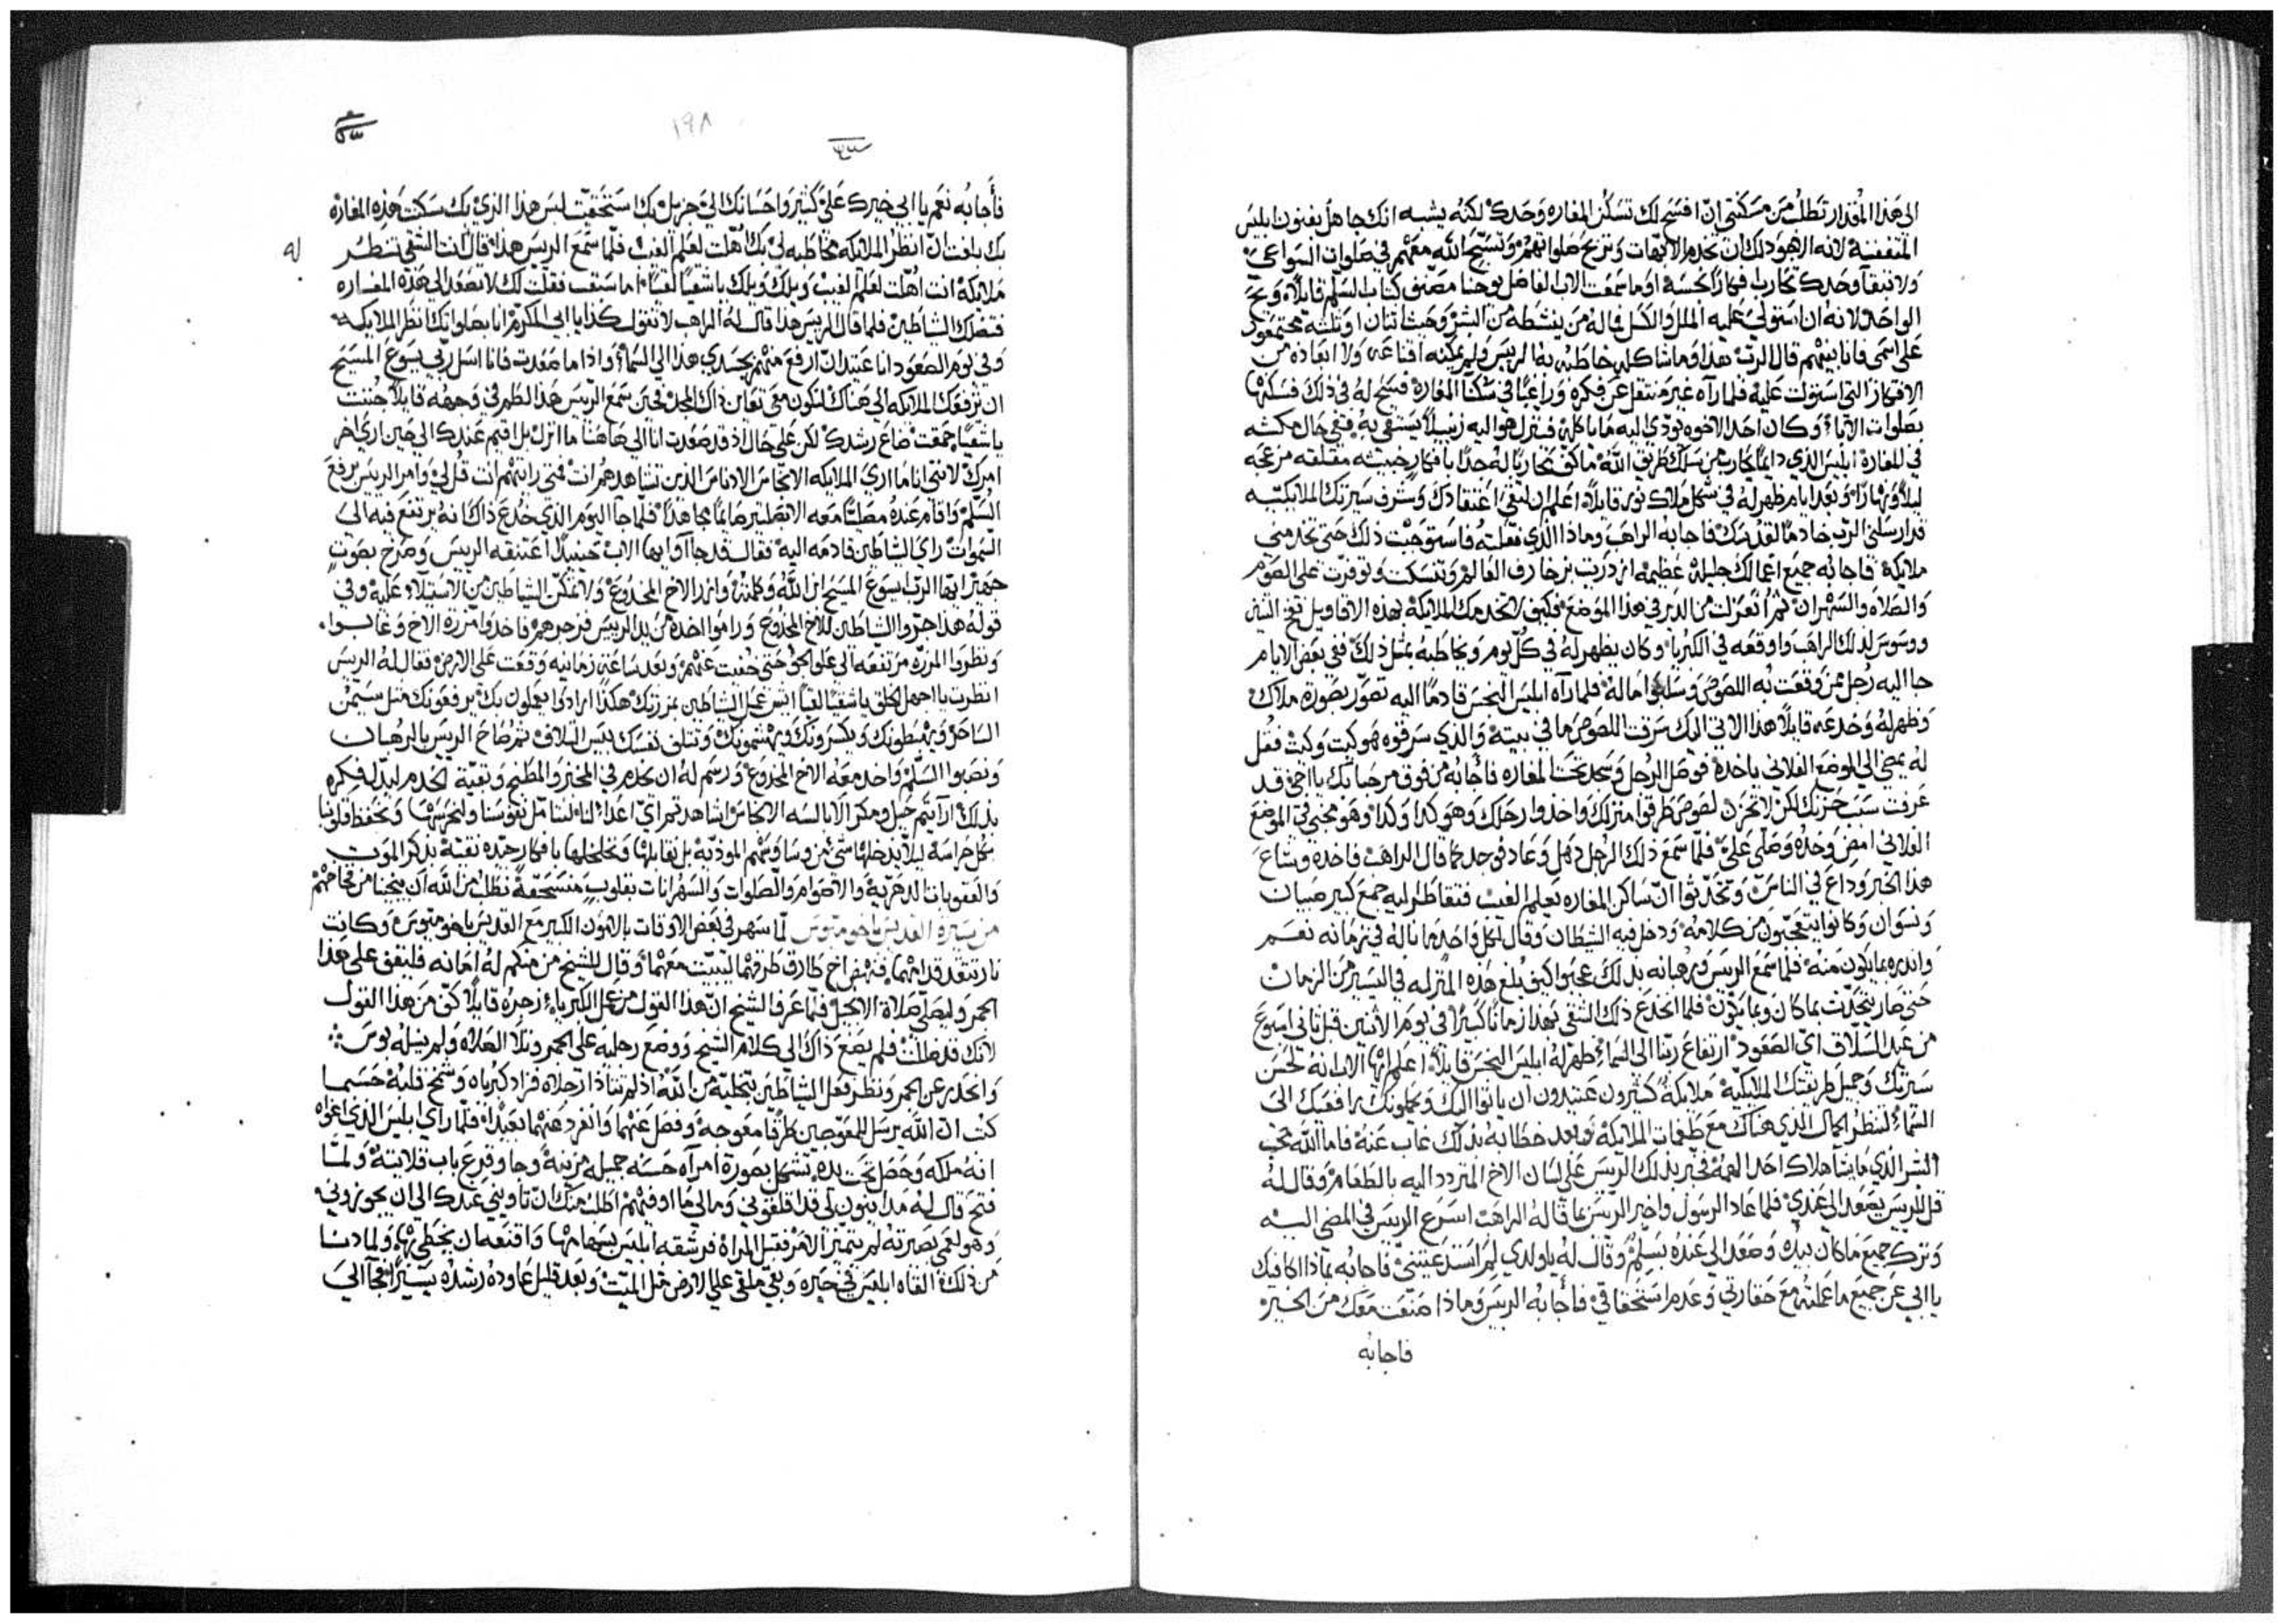 الى هذا المقدار تطلب من مسكنتي ان افسح لك تسكن المغاره وحدك لكنه يشبه انك جاهل بفنون ابليس
المتفننة لانه الاجود لك ان تخدم الابهات وتربح صلواتهم وتسبح الله معهم في صلوات السواعي
ولا تبقا وحدك تحارب فكارًا نجسة اوما سمعت الاب الفاضل يوحنا مصنف كتاب السلم قايلاً ويح
الواحد لانه ان استولي عليه الملل والكسل فما له من ينشطه من البشر وحيث اثنان او ثلثة مجتمعون
على اسمي فانا بينهم قال الرب هذا وما شاكله خاطبه به الريس ولم يمكنه اقناعه ولا ابعاده من
الافكار التي استولت عليه فلما رآه غير منتقل عن فكره وراغبًا في سكنا المغارة فسح له في ذلك فسكنها
بصلوات الآباء وكان احد الاخوه يودي اليه ما ياكله فينزل هو اليه زنبيلاً يستقي به ففي حال مكثه
في المغارة ابليس الذي دايمًا يحارب من يسلك طريق الله ما كف محاربًا له جدًا بافكار خبيثه مقلقه مزعجه
ليلاً ونهارًا وبعد ايام ظهر له في شكل ملاك نور قايلاً اعلم ان لنقي اعتقادك وشرف سيرتك الملايكيه
قد ارسلني الرب خادمًا لقدسك فاجابه الراهب وماذا الذي فعلته فاستوجبت ذلك حتى تخدمني
ملايكة فاجابه جميع اعمالك جليله عظيمه ازدريت بزخارف العالم وتنسكت وتوفرت على الصوم
والصلاة والسهران ثم انعزلت من الدير في هذا الموضع فكيف لا تخدمك الملايكة بهذه الاقاويل نفخ التنين
ووسوس لذلك الراهب واوقعه في الكبرياء وكان يظهر له في كل يوم ويخاطبه بمثل ذلك ففي بعض الايام
جا اليه رجل ممن وقعت به اللصوص وسلبوا ماله فلما رآه ابليس النجس قادمًا اليه تصوّر بصورة ملاك
وظهر له وخدعه قايلاً هذا الاتي اليك سرقت اللصوص ما في بيته والذي سرقوه هو كيت وكيت فقل
له يمضي الى الموضع الفلاني ياخذه فوصل الرجل وسجد تحت المغاره فاجابه من فوق مرحبا بك يا اخي قد
عرفت سبب حزنك لكن لا تحزن لصوص طرقوا منزلك واخذوا رحلك وهو كذا وكذا وهو مخبي في الموضع
الفلاني امض وخذه وصلي عليّ فلما سمع ذلك الرجل ذهل وعاد فوجد كما قال الراهب فاخذه وشاع
هذا الخبر وذاع في الناس وتحدثوا ان ساكن المغاره يعلم الغيب فتقاطر اليه جمع كبير صبيان
ونسوان وكانوا يتعجبون من كلامه ودخل فيه الشيطان وقال لكل واحد ما ناله في زمانه نعم
وانذره بما يكون منه فلما سمع الريس ورهبانه بذلك عجبوا كيف بلغ هذه المنزله في اليسير من الزمان
حتى صار يتحدّث بما كان وبما يكوّن فلما انخدع ذلك الشقي بهذا زمانًا كبيرًا في يوم الاثنين قبل ثاني اسبوع
من عيد السلاق اي الصعود ارتفاع ربنا الى السماء ظهر له ابليس النجس قايلاً اعلم ايها الاب انه لحسن
سيرتك وجميل طريقتك الملايكيه ملايكة كثيرون عتيدون ان ياتوا اليك ويحملونك رافعيك الى
السماء لتنظر الجمال الذي هناك مع طغمات الملايكة وبعد خطابه بذلك غاب عنه فاما الله محب
البشر الذي ما يشا هلاك احد الهمه فخبر بذلك الريس على لسان الاخ المتردد اليه بالطعام وقال له
قل للريس يصعد الى عندي فلما عاد الرسول واخبر الريس بما قاله الراهب اسرع الريس في المضي اليه
وترك جميع ما كان بيده وصعد الى عنده بسلّم وقال له يا ولدي لم استدعيتني فاجابه بماذا اكافيك
يا ابي عن جميع ما عملته مع حقارتي وعدم استحقاقي فاجابه الريس وماذا صنعت معك من الخير
فاجابه
١٩٨
فاجابه نعم يا ابي خيرك عليّ كثير واحسانك اليّ جزيل بك استحققت لبس هذا الزي بك سكنت هذه المغارة
بك بلغت ان انظر الملايكه مخاطبه لي بك اهّلت لعلم الغيب فلما سمع الريس هذا قال انت الشقي تنظر
ملايكة انت اهّلت لعلم الغيب ويلك ويلك يا شقيًا لقيًا اما سبقت فقلت لك لا تصعد الى هذه المغاره
فتضلك الشياطين فلما قال الريس هذا قال له الراهب لا تقول كذا يا ابي المكرم انا بصلواتك انظر الملايكه
وفي يوم الصعود انا عتيد ان ارفع منهم بجسدي هذا الى السماء واذا ما صعدت فانا اسل ربي يسوع المسيح
ان ترفعك الملايكه الى هناك لتكون معي تعاين ذاك المجد فحين سمع الريس هذا لطم في وجهه قايلاً جننت
يا شقيًا حمقت ضاع رشدك لكن على حال اذ قد صعدت انا الى هاهنا ما انزل بل اقيم عندك الى حين ارى اخر
امرك لانني انا ما ارى الملايكه الانجاس الادناس الذين تشاهدهم انت فمتى رايتهم انت قل لي وامر الريس برفع
السلم واقام عنده مصليًا معه الابصلتير صايمًا مجاهدًا فلما جا اليوم الذي خدع ذاك انه يرتفع فيه الى
السموات راي الشياطين قادمه اليه فقال قد جاآوا ايها الاب حينيذًا اعتنقه الريس وصرخ بصوتٍ
جهير ايها الرب يسوع المسيح ابن الله وكلمته وازر الاخ المخدوع ولا تمكّن الشياطين من الاستيلاء عليه وفي
قوله هذا جرّوا الشياطين للاخ المخدوع وراموا اخذه من يد الريس فزجرهم فاخذوا مزرة الاخ وغابوا
ونظروا المزره مرتفعه الى علو الجو حتى خفيت عنهم وبعد ساعة زمانيه وقعت على الارض فقال له الريس
انظرت يا اجهل الخلق يا شقيًا لقيًا ايش عمل الشياطين بمزرتك هكذا ارادوا يعملون بك يرفعونك مثل سيمن
الساحر ويهبطونك ويكسرونك ويهشمونك وتتلف نفسك بيس التلاف ثم صاح الريس بالرهبان
ونصبوا السلم واخذ معه الاخ المخدوع ورسم له ان يخدم في المخبز والمطبخ وبقية الخدم ليذل فكره
بذلك ارآيتم حيل ومكر الابالسه الانجاس اشاهدتم اي اعداء لنا لنتامل نفوسنا ولنحرسها ونحفظ قلوبنا
بكل حراسة ليلا يدخلها شي من وساوسهم الموذيّة بل نقابلها ونخلخلها بافكار جيّده نقيّة بذكر الموت
والعقوبات الدهريّة والاصوام والصلوات والسهرانات بقلوبٍ منسحقة نطلب من الله ان ينجينا من فخاخهم
من سيرة القديس باخوميوس لمّا سهر في بعض الاوقات بالامون الكبير مع القديس باخوميوس وكانت
نار تتقد قدامهما فبهم اخ طارق طرقهما ليبيت معهما وقال للشيخ من منكم له امانه فليقف على هذا
الجمر وليصلي صلاة الانجيل فلما عرف الشيخ ان هذا القول من عمل الكبرياء زجره قايلاً كفّ من هذا القول
لانك قد ضللت فلم يضع ذاك الى كلام الشيخ ووضع رجليه على الجمر وتلا الصلاة ولم ينله بوس
وانحدر عن الجمر ونظر فعل الشياطين بتخلية من الله اذ لم تتاذا رجلاه فزاد كبرياه وشمخ قلبه حسبما
كتب ان الله يرسل للمعوجين طرقًا معوجه وفصل عنهما وانفرد عنهما بعيدًا فلما راي ابليس الذي اغواه
انه ملكه وحصل تحت يده تشكل بصورة امرآه حسنه جميله مزينه وجا وقرع باب قلايته ولمّا
فتح قال له مداينون لي قد اقلقوني وما لي ما اوفيهم اطلب منك ان تاويني عندك الى ان يجوزوني
وهو لعمي بصيرته لم يتميز الامر فقبل المراة فرشقه ابليس بسهامها واقنعه ان يخطي بها ولما دنا
من ذلك القاه ابليس في حيره وبقي ملقى على الارض مثل الميت وبعد قليل عاوده رشده يسيرًا فجآ الى